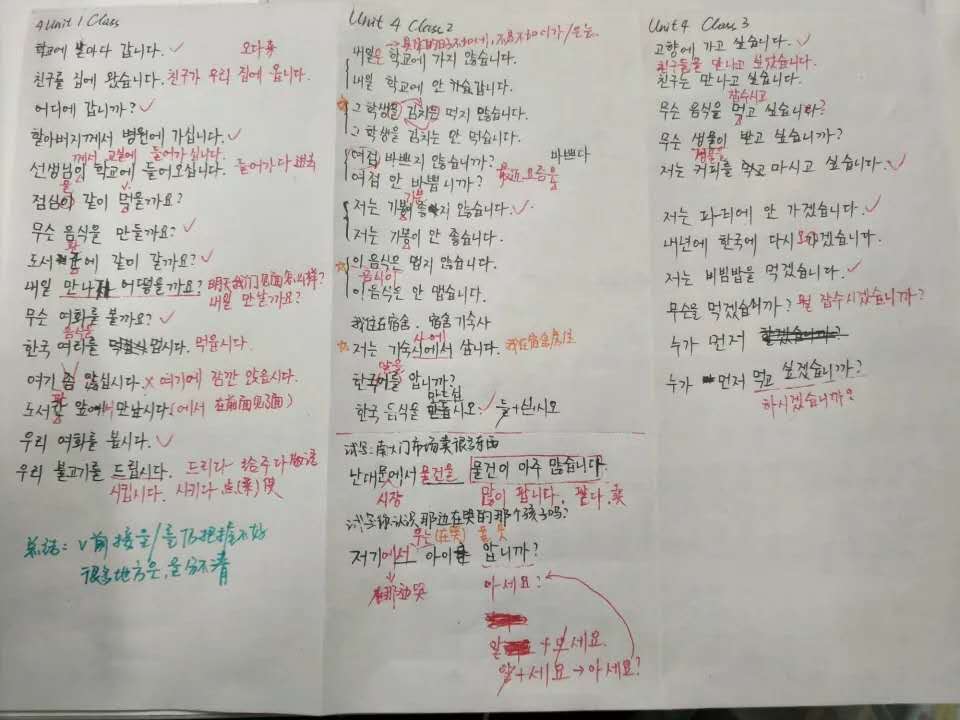 4 Unit 1 Class
학교에 날마다 갑니다. ✓ 오다来
친구를 집에 왔습니다. 친구가 우리 집에 옵니다.
어디에 갑니까? ✓
할아버지께서 병원에 가십니다. ✓
께서 교실에 들어가십니다.
선생님이 학교에 들어오십니다. 들어가다 进去
을
점심이 같이 먹을까요?
무슨 음식을 만들까요? ✓
관
도서 에 같이 갈까요? ✓
내일 만나 어떻을까요? 明天我们见面怎么样?
내일 만날까요?
무슨 영화를 볼까요? ✓
음식을
한국 여리를 먹읍시다. 먹읍시다.
여기 좀 않십시다. × 여기에 잠깐 앉읍시다.
관
도서관 앞에서 만납시다 (에서 在前面见面)
우리 영화를 봅시다. ✓
우리 불고기를 드립시다. 드리다 → 给 주다
시킵시다. 시키다 点(菜)
总结: V前接을/를 仍把握不好
很多地方은,을分不清
Unit 4 Class 2
내일은 학교에 가지 않습니다.
내일 학교에 안 가습갑니다.
☆ 그 학생을 김치는 먹지 않습니다.
그 학생을 김치는 안 먹습니다.
여접 바쁘지 않습니까? 바쁘다
여접 안 바쁩니까? 最近.요즘은
기분
저는 기붕이 좋지 않습니다. ✓
저는 기붕이 안 좋습니다.
☆ 이 음식은 맵지 않습니다.
음식이
이 음식은 안 맵습니다.
我住在宿舍. 宿舍기숙사
사에
☆ 저는 기숙시에서 삽니다. 我在宿舍居住
말을
한국어를 압니까?
만드십
한국 음식을 만듭시오. ✓ 들+십시오
试写:南大门市场卖很多东西
난대문에서 물건을 물건이 아주 많습니다.
시장 많이 팝니다. 팔다.卖
试写:你认识那边在哭的那个孩子吗?
우는(在哭) 울 哭
저기에서 아이를 압니까?
在那边哭
아세요?
알 + 으세요.
알+세요 → 아세요?
Unit 4 Class 3
고향에 가고 싶습니다. ✓
친구들을 만나고 싶었습니다.
친구는 만나고 싶습니다.
잡수시고
무슨 음식을 먹고 싶습니까?
무슨 생물이 받고 싶습니까?
선물을
저는 커피를 먹고 마시고 싶습니다. ✓
저는 파리에 안 가겠습니다. ✓
내년에 한국에 다시 오가겠습니다.
저는 비빔밥을 먹겠습니다. ✓
무슨을 먹겠습니까? 뭘 잡수시겠습니까?
누가 먼저 할겠습니까?
누가 먼저 먹고 싶겠습니까?
하시겠습니까?